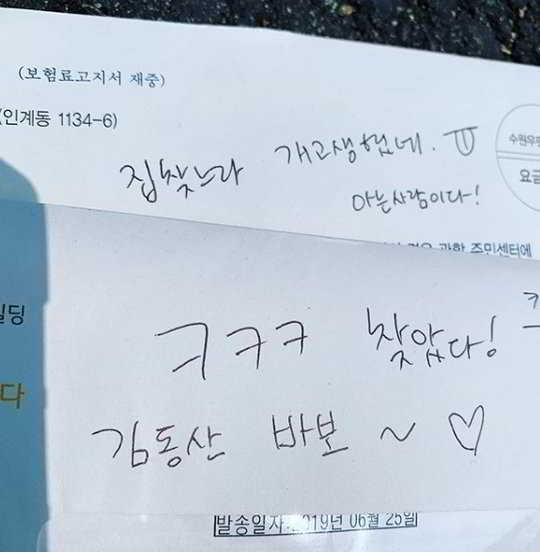 (보험료고지서 재중)
(인계동 1134-6)
수원우편
요금
집찾느라 개고생했네. ㅠ
아는사람이다!
관할 주민센터에
딩
다
ㅋㅋㅋ 찾았다!
김동산 바보 ~ ♡
발송일자:2019년 06월 25일